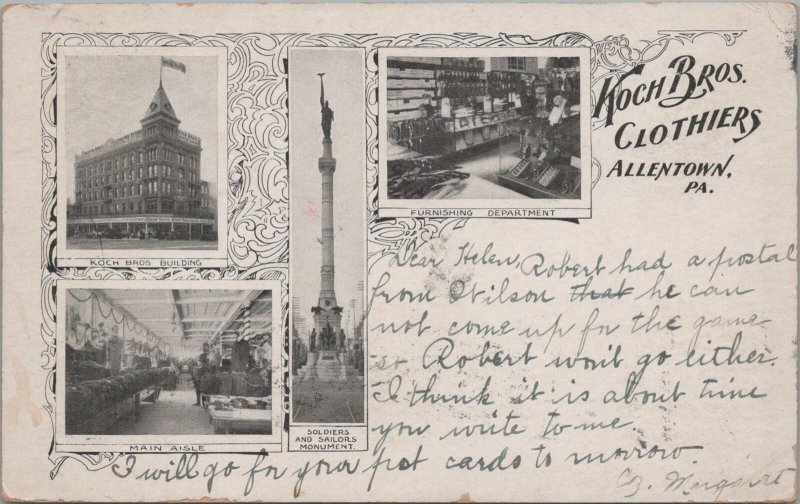 KOCH BROS.
CLOTHIERS
ALLENTOWN,
PA.
KOCH BROS BUILDING
SOLDIERS
AND SAILORS
MONUMENT.
FURNISHING DEPARTMENT
MAIN AISLE
Dear Helen, Robert had a postal
from Wilson that he can
not come up for the game-
so Robert won't go either.
I think it is about time
you write to me.
I will go for your pst cards to morrow
Margaret